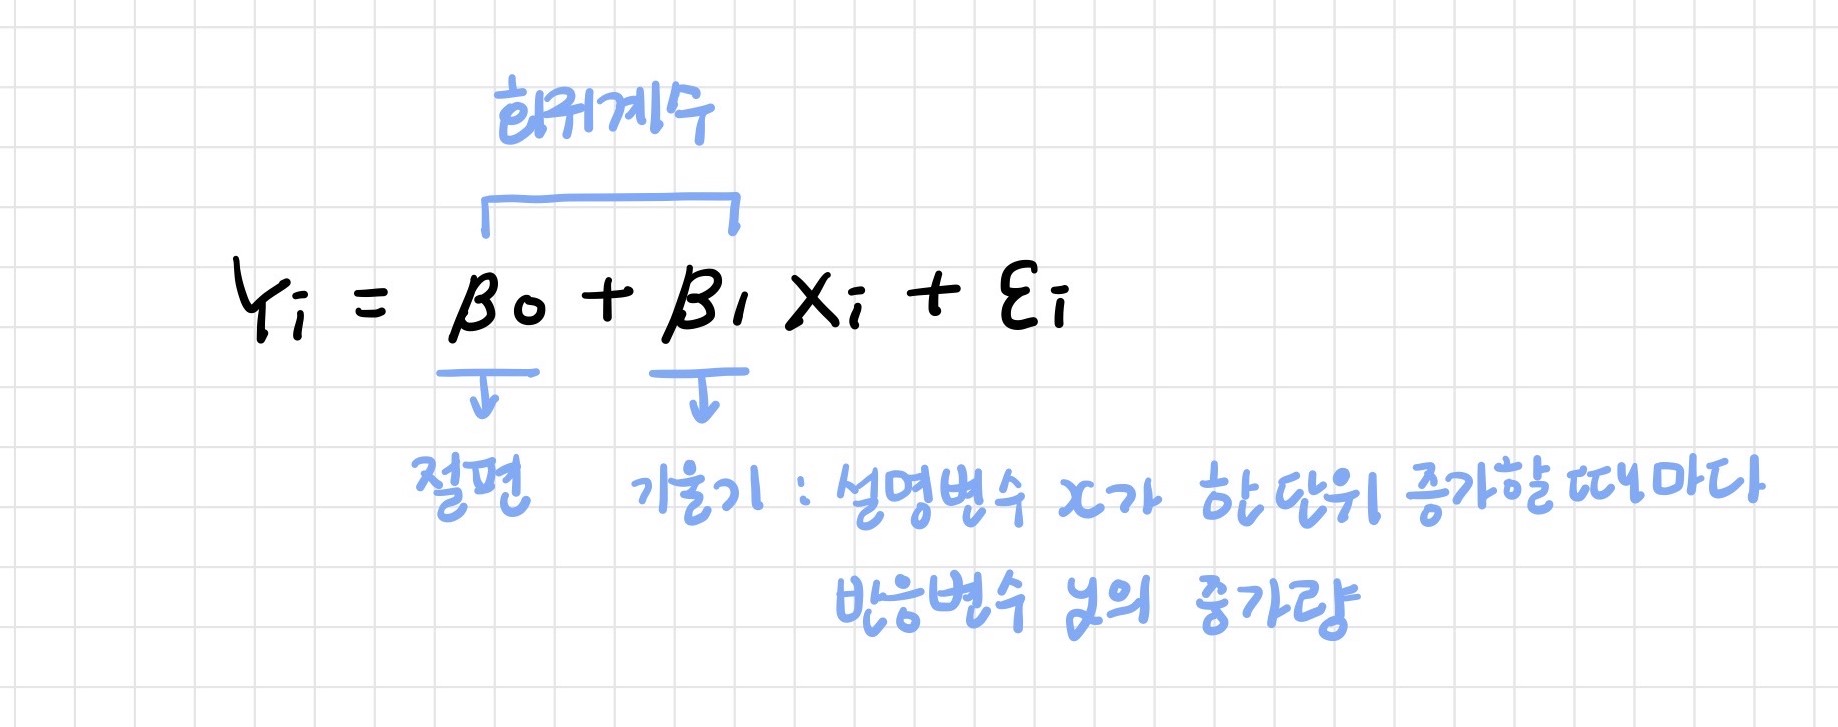 회귀계수
Yi = β0 + β1 Xi + εi
절편 기울기 : 설명변수 x가 한 단위 증가할 때마다
반응변수 y의 증가량